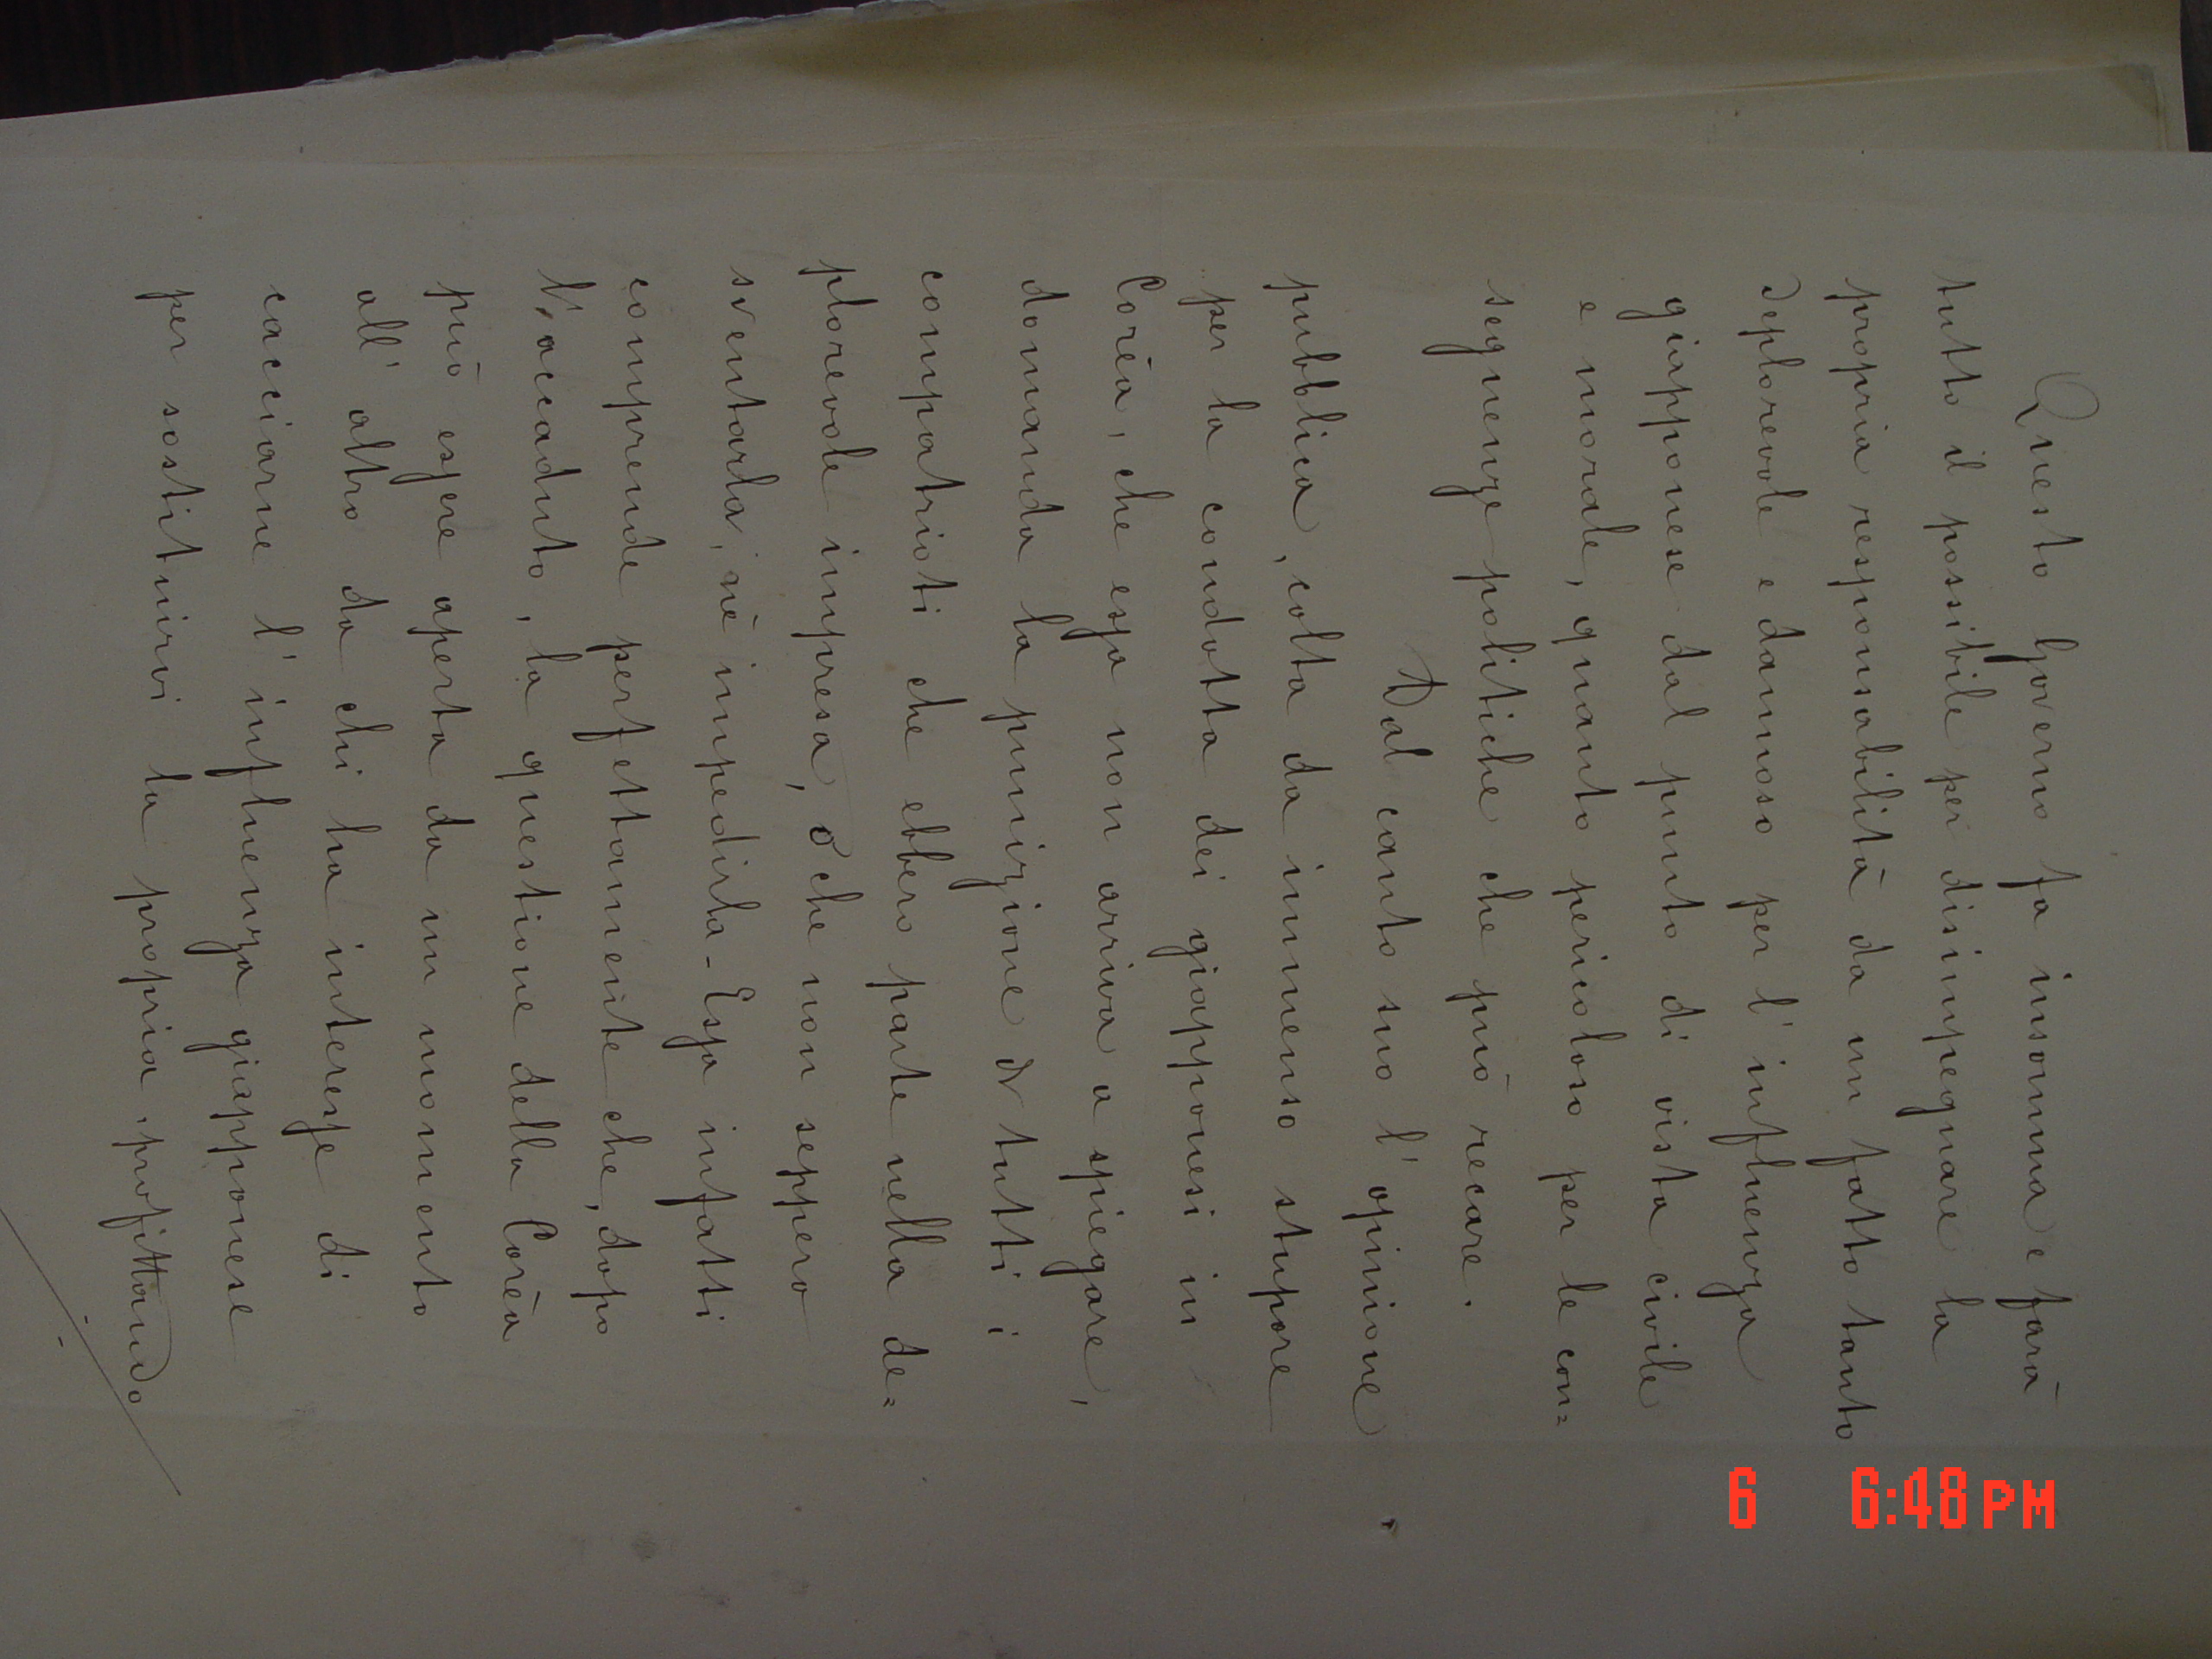 Questo Governo fa insomma e farà
tutto il possibile per disimpegnare la
propria responsabilità da un fatto tanto
deplorevole e dannoso per l'influenza
giapponese dal punto di vista civile
e morale, quanto pericoloso per le con=
seguenze politiche che può recare.
Dal canto suo l'opinione
pubblica, colta da immenso stupore
per la condotta dei giapponesi in
Corèa, che essa non arriva a spiegare,
domanda la punizione di tutti i
compatrioti che ebbero parte nella de=
plorevole impresa, o che non seppero
sventarla, nè impedirla - Essa infatti
comprende perfettamente che, dopo
l'accaduto, la questione della Corèa
può essere aperta da un momento
all'altro da chi ha interesse di
cacciarne l'influenza giapponese
per sostituirvi la propria, profittando
6 6:48 PM